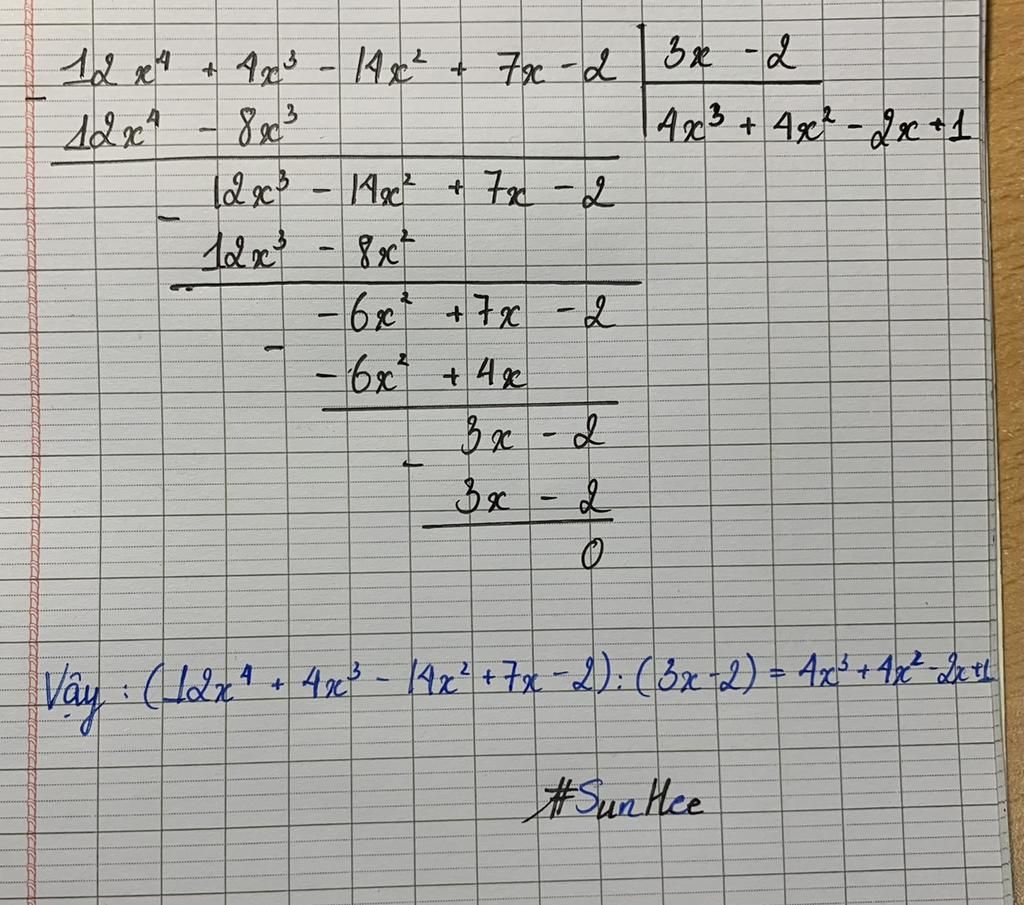 12x⁴ + 4x³ - 14x² + 7x - 2 | 3x - 2
- 12x⁴ - 8x³ | 4x³ + 4x² - 2x + 1
12x³ - 14x² + 7x - 2
- 12x³ - 8x²
- 6x² + 7x - 2
- - 6x² + 4x
3x - 2
- 3x - 2
0
Vậy : (12x⁴ + 4x³ - 14x² + 7x - 2) : (3x - 2) = 4x³ + 4x² - 2x + 1
#SunHee